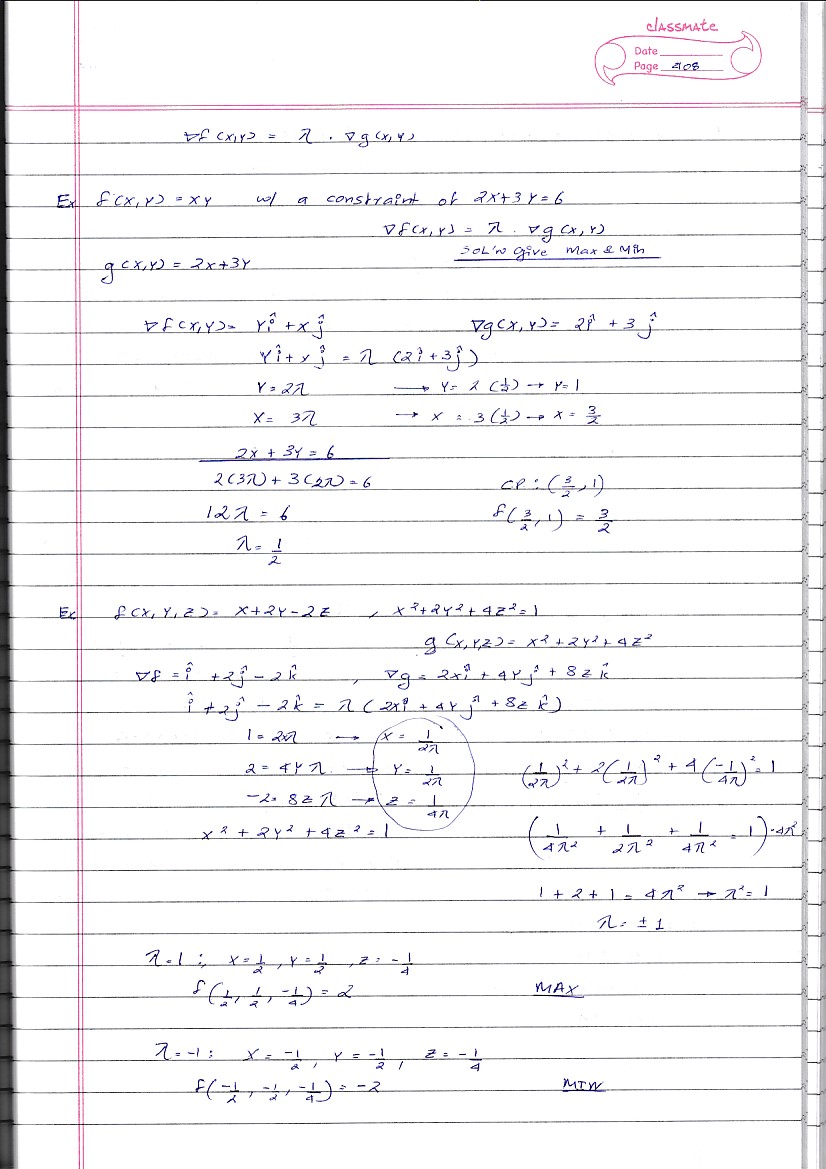 classmate
Date
Page 408
∇f(x,y) = λ . ∇g(x,y)
Ex f(x,y) = xy w/ a constraint of 2x+3y=6
∇f(x,y) = λ . ∇g(x,y)
SOL'N Give Max & Min
g(x,y) = 2x+3y
∇f(x,y) = yî + xĵ ∇g(x,y) = 2î + 3ĵ
yî + xĵ = λ (2î + 3ĵ)
y = 2λ → y = 2 (1/2) → y = 1
x = 3λ → x = 3 (1/2) → x = 3/2
2x + 3y = 6
2(3λ) + 3(2λ) = 6 CP : (3/2, 1)
12λ = 6 f(3/2, 1) = 3/2
λ = 1/2
Ex f(x,y,z) = x+2y-2z , x²+2y²+4z²=1
g(x,y,z) = x²+2y²+4z²
∇f = î + 2ĵ - 2k̂ , ∇g = 2xî + 4yĵ + 8zk̂
î + 2ĵ - 2k̂ = λ (2xî + 4yĵ + 8zk̂)
1 = 2xλ → x = 1/2λ
2 = 4yλ → y = 1/2λ (1/2λ)² + 2(1/2λ)² + 4(-1/4λ)² = 1
-2 = 8zλ → z = 1/4λ
x² + 2y² + 4z² = 1 (1/4λ² + 1/2λ² + 1/4λ² = 1) · 4λ²
1 + 2 + 1 = 4λ² → λ² = 1
λ = ± 1
λ = 1 : x = 1/2 , y = 1/2 , z = -1/4
f(1/2, 1/2, -1/4) = 2 MAX
λ = -1 : x = -1/2 , y = -1/2 , z = -1/4
f(-1/2, -1/2, -1/4) = -2 MIN